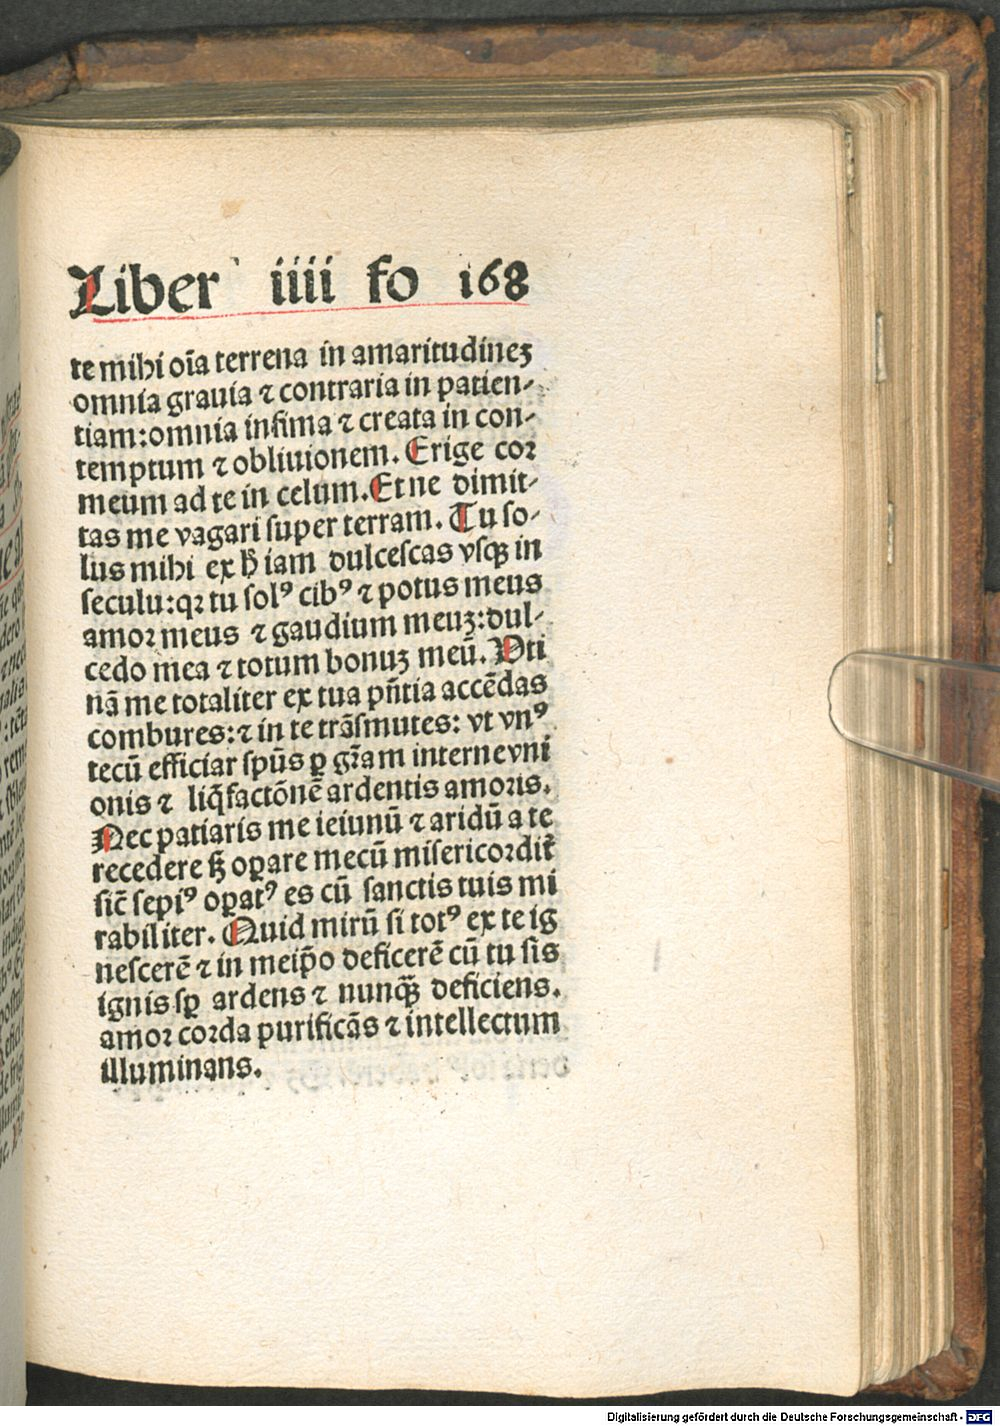 Liber iiii fo 168
te mihi oīa terrena in amaritudineꝫ
omnia grauia ⁊ contraria in patien-
tiam:omnia infima ⁊ creata in con-
temptum ⁊ obliuionem. Erige cor
meum ad te in celum. Et ne dimit-
tas me vagari super terram. Tu so-
lus mihi ex hͨ iam dulcescas vsqꝫ in
seculu:qꝛ tu solꝰ cibꝰ ⁊ potus meus
amor meus ⁊ gaudium meuꝫ:dul-
cedo mea ⁊ totum bonuꝫ meū. Vti
nā me totaliter ex tua pn̄tia accēdas
combures:⁊ in te trāsmutes: vt vnꝰ
tecū efficiar spūs ꝑ gr̄am interne vni
onis ⁊ liq̄factōnē ardentis amoris.
Nec patiaris me ieiunū ⁊ aridū a te
recedere sꝫ oꝑare mecū misericordit̄
sic̄ sepiꝰ oꝑatꝰ es cū sanctis tuis mi
rabiliter. Quid mirū si totꝰ ex te ig
nescerē ⁊ in meip̄o deficerē cū tu sis
ignis sꝑ ardens ⁊ nunqꝫ̄ deficiens.
amor corda purificās ⁊ intellectum
illuminans.
Digitalisierung gefördert durch die Deutsche Forschungsgemeinschaft - DFG